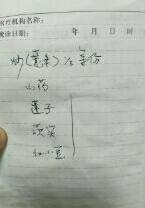 医疗机构名称:
就诊日期: 年 月 日 时
炒(薏米) 1s 等份
山药
莲子
芡实
红小豆